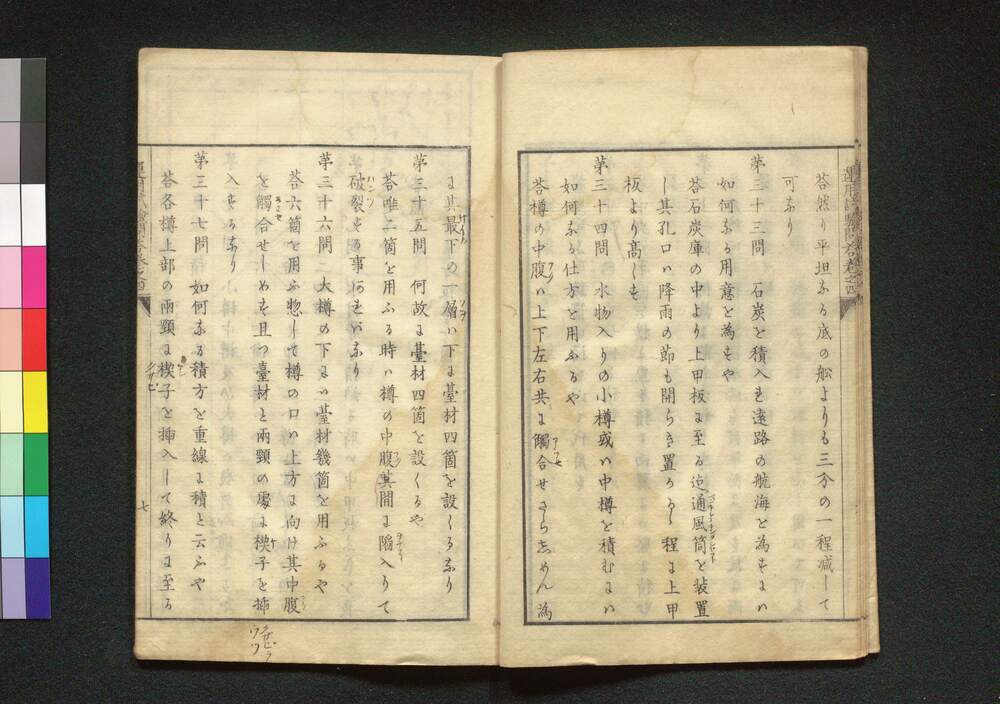 答然り平坦なる底の舩よりも三分の一程減して
可なり
第三十三問　石炭を積入も遠路の航海を為すには
如何なる用意を為もや
答石炭庫の中より上甲板に至る迄通風筒を装置
し其孔口は降雨の節も開らき置かるゝ程に上甲
板より高しも
第三十四問　水物入りの小樽或は中樽を積むには
如何なる仕方を用ふるや
答樽の中腹は上下左右共に觸合せさらしめん為
に其最下の一層は下に臺材四箇を設くるなり
第三十五問　何故に臺材四箇を設くるや
答唯二箇を用ふる時は樽の中腹其間に陥入りて
破裂する事あれはなり
第三十六問　大樽の下には臺材幾箇を用ふるや
答六箇を用ふ惣して樽の口は上方に向け其中腹
を觸合せしめす且つ臺材と兩頸の處に楔子を揷
入するなり
第三十七問　如何なる積方を重線に積と云ふや
答各樽上部の兩頸に楔子を揷入して終りに至る
七